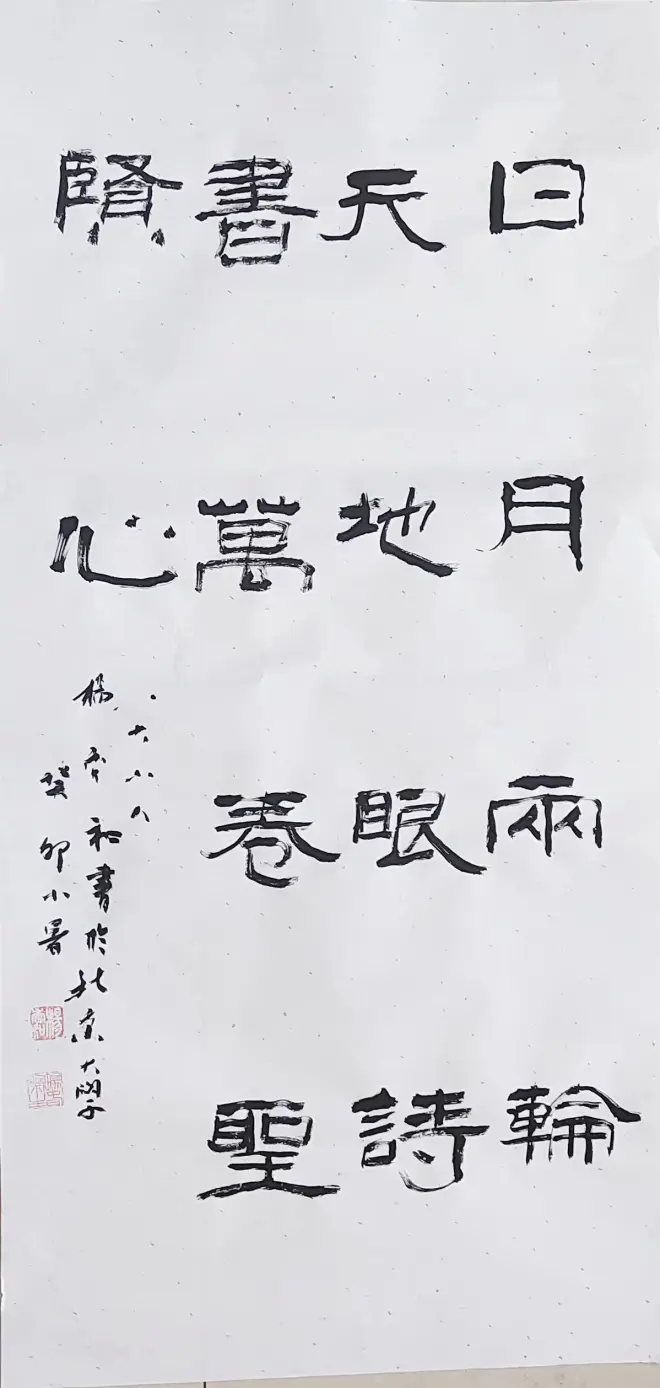 日月兩輪
天地眼詩
書萬卷聖
賢心
楊 和書於北京大學
癸卯小暑